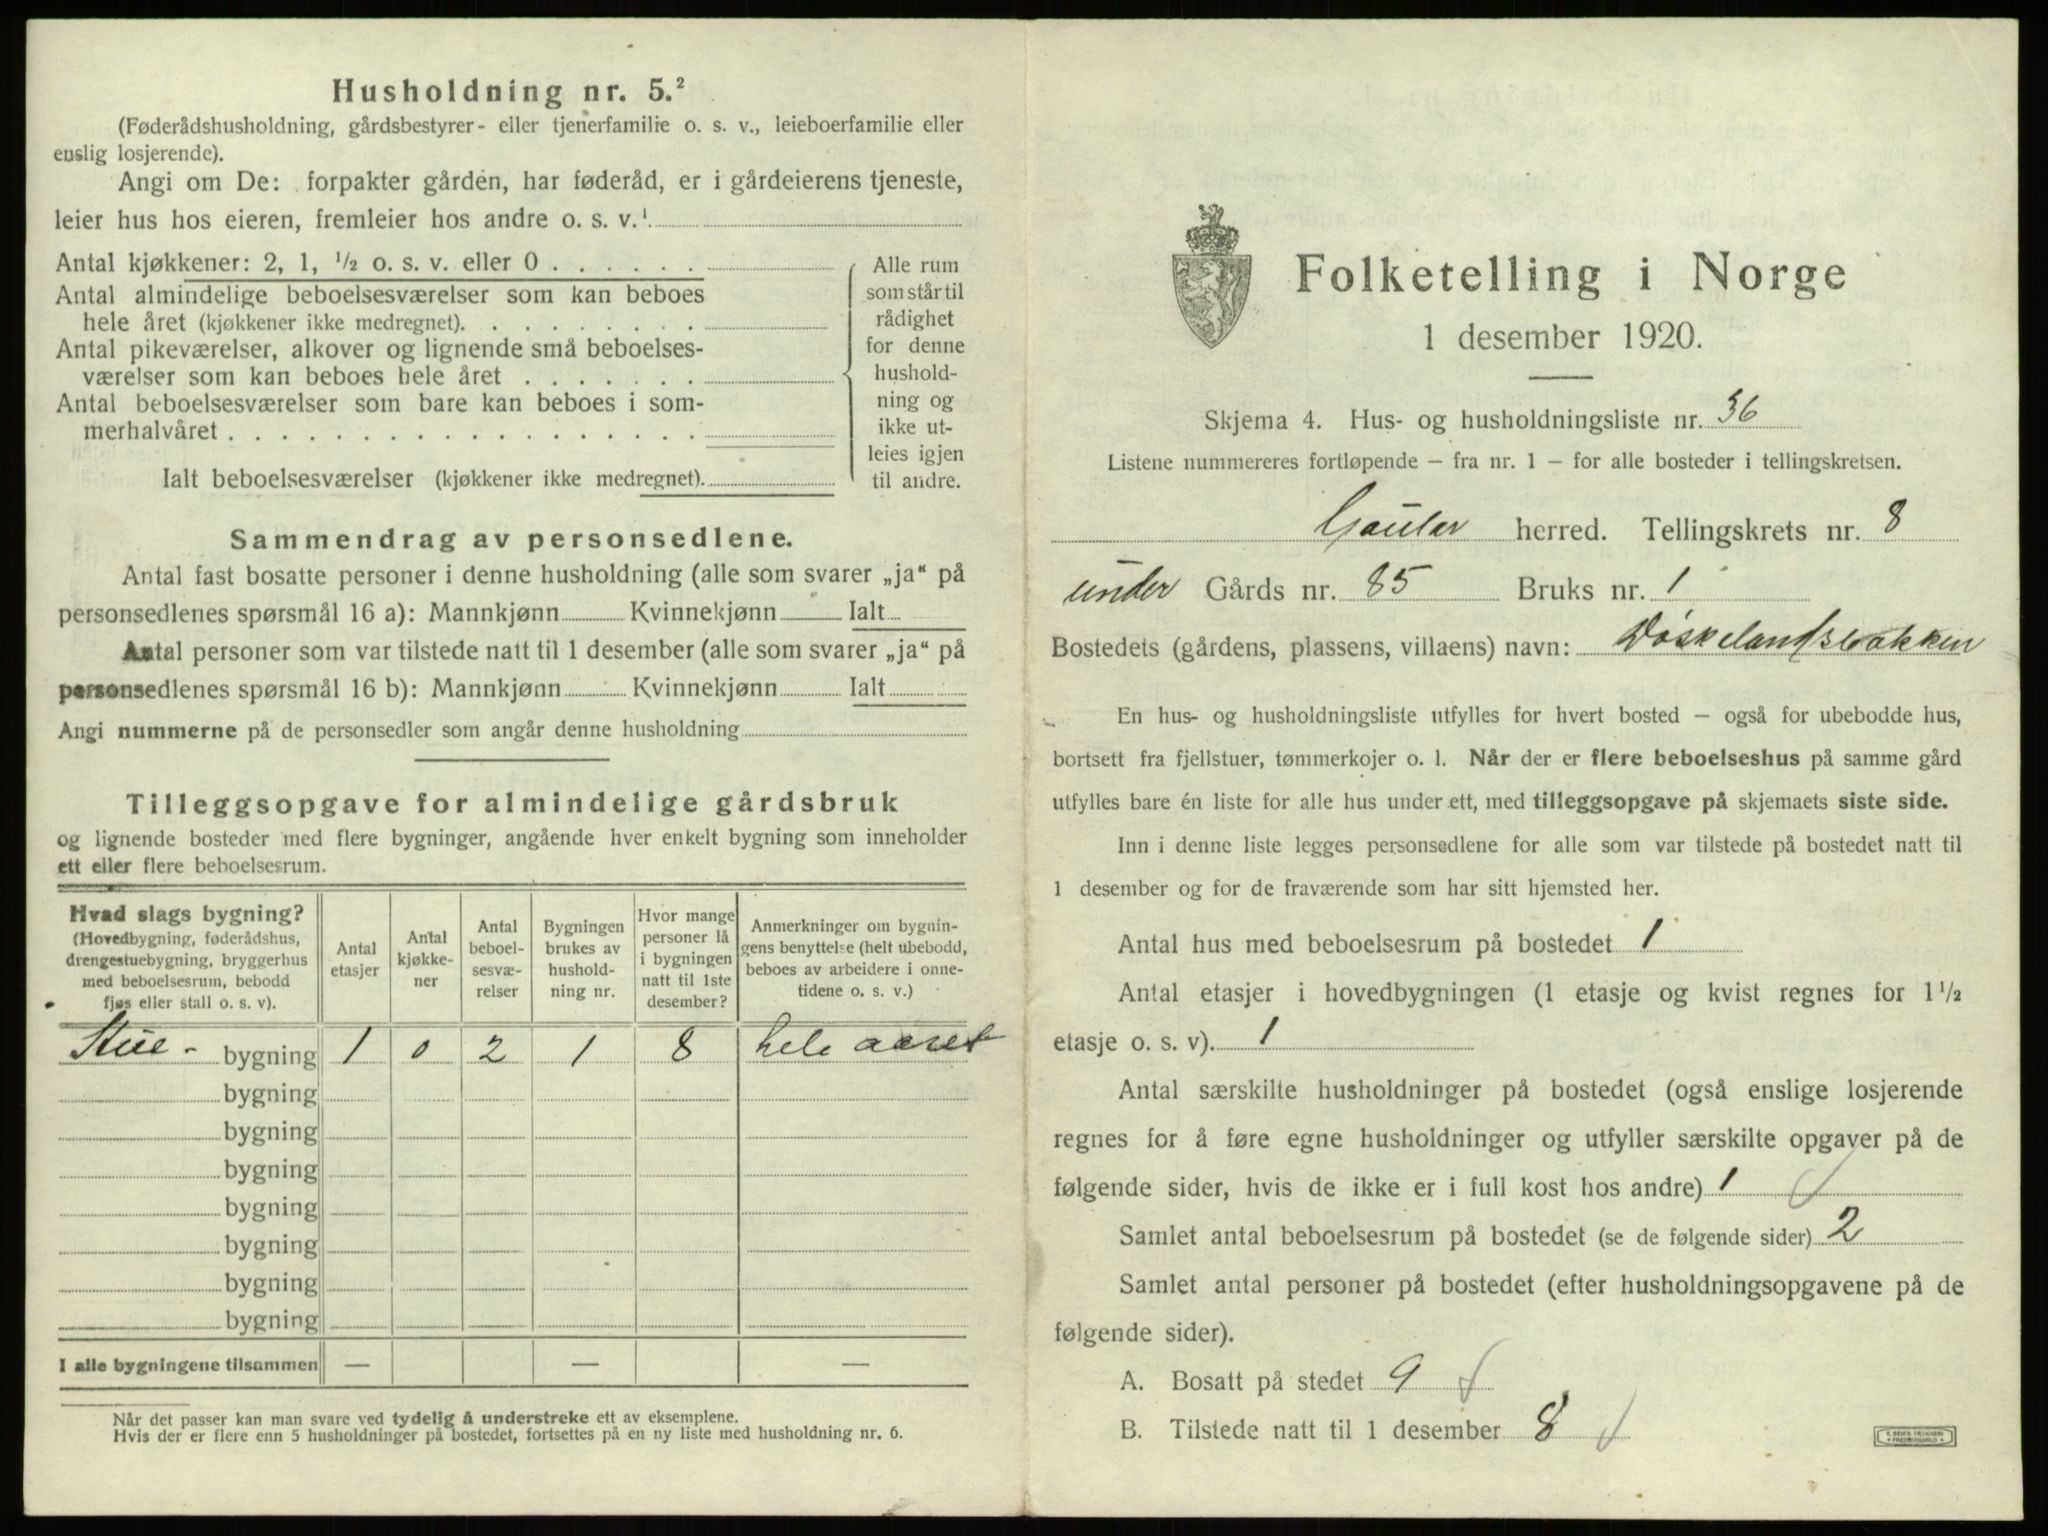 Husholdning nr. 5.²
(Føderådshusholdning, gårdsbestyrer- eller tjenerfamilie o. s. v., leieboerfamilie eller
enslig losjerende).
Angi om De: forpakter gården, har føderåd, er i gårdeierens tjeneste,
leier hus hos eieren, fremleier hos andre o. s. v.¹
Antal kjøkkener: 2, 1, ½ o. s. v. eller 0
Antal almindelige beboelsesværelser som kan beboes
hele året (kjøkkener ikke medregnet).
Antal pikeværelser, alkover og lignende små beboelses-
værelser som kan beboes hele året
Antal beboelsesværelser som bare kan beboes i som-
merhalvåret
Ialt beboelsesværelser (kjøkkener ikke medregnet).
Alle rum
som står til
rådighet
for denne
hushold-
ning og
ikke ut-
leies igjen
til andre.
Sammendrag av personsedlene.
Antal fast bosatte personer i denne husholdning (alle som svarer „ja“ på
personsedlenes spørsmål 16 a): Mannkjønn Kvinnekjønn Ialt
Antal personer som var tilstede natt til 1 desember (alle som svarer „ja“ på
personsedlenes spørsmål 16 b): Mannkjønn Kvinnekjønn Ialt
Angi nummerne på de personsedler som angår denne husholdning
Tilleggsopgave for almindelige gårdsbruk
og lignende bosteder med flere bygninger, angående hver enkelt bygning som inneholder
ett eller flere beboelsesrum.
Hvad slags bygning?
(Hovedbygning, føderådshus,
drengestuebygning, bryggerhus
med beboelsesrum, bebodd
fjøs eller stall o. s. v).
Antal
etasjer
Antal
kjøkke-
ner
Antal
beboel-
sesvæ-
relser
Bygningen
brukes av
hushold-
ning nr.
Hvor mange
personer lå
i bygningen
natt til 1ste
desember?
Anmerkninger om bygnin-
gens benyttelse (helt ubebodd,
beboes av arbeidere i onne-
tidene o. s. v.)
Stue- bygning 1 0 2 1 8 hele aaret
bygning
bygning
bygning
bygning
bygning
bygning
bygning
I alle bygningene tilsammen — — —
Når det passer kan man svare ved tydelig å understreke ett av eksemplene.
Hvis der er flere enn 5 husholdninger på bostedet, fortsettes på en ny liste med husholdning nr. 6.
Folketelling i Norge
1 desember 1920.
Skjema 4. Hus- og husholdningsliste nr. 36
Listene nummereres fortløpende – fra nr. 1 – for alle bosteder i tellingskretsen.
Gaular herred. Tellingskrets nr. 8
under Gårds nr. 85 Bruks nr. 1
Bostedets (gårdens, plassens, villaens) navn: Døskelandsbakken
En hus- og husholdningsliste utfylles for hvert bosted – også for ubebodde hus,
bortsett fra fjellstuer, tømmerkojer o. l. Når der er flere beboelseshus på samme gård
utfylles bare én liste for alle hus under ett, med tilleggsopgave på skjemaets siste side.
Inn i denne liste legges personsedlene for alle som var tilstede på bostedet natt til
1 desember og for de fraværende som har sitt hjemsted her.
Antal hus med beboelsesrum på bostedet 1
Antal etasjer i hovedbygningen (1 etasje og kvist regnes for 1½
etasje o. s. v). 1
Antal særskilte husholdninger på bostedet (også enslige losjerende
regnes for å føre egne husholdninger og utfyller særskilte opgaver på de
følgende sider, hvis de ikke er i full kost hos andre) 1
Samlet antal beboelsesrum på bostedet (se de følgende sider) 2
Samlet antal personer på bostedet (efter husholdningsopgavene på de
følgende sider).
A. Bosatt på stedet 9
B. Tilstede natt til 1 desember 8